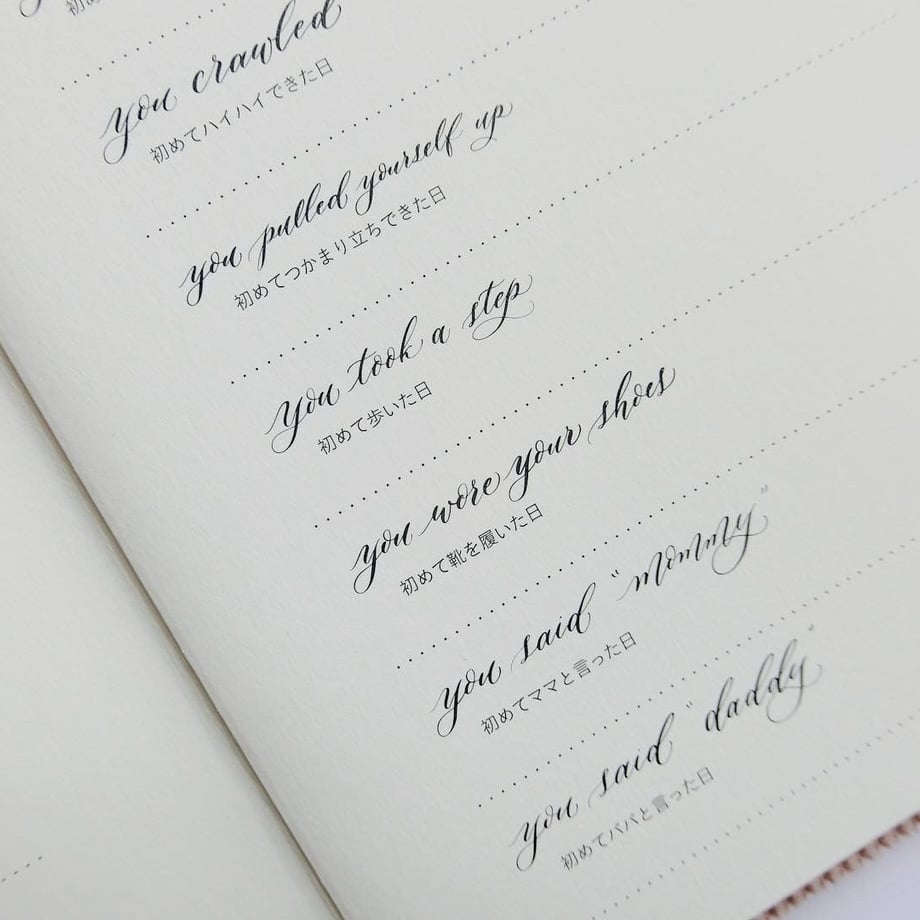 初め
you crawled
初めてハイハイできた日
you pulled yourself up
初めてつかまり立ちできた日
you took a step
初めて歩いた日
you wore your shoes
初めて靴を履いた日
you said "mommy"
初めてママと言った日
you said "daddy"
初めてパパと言った日